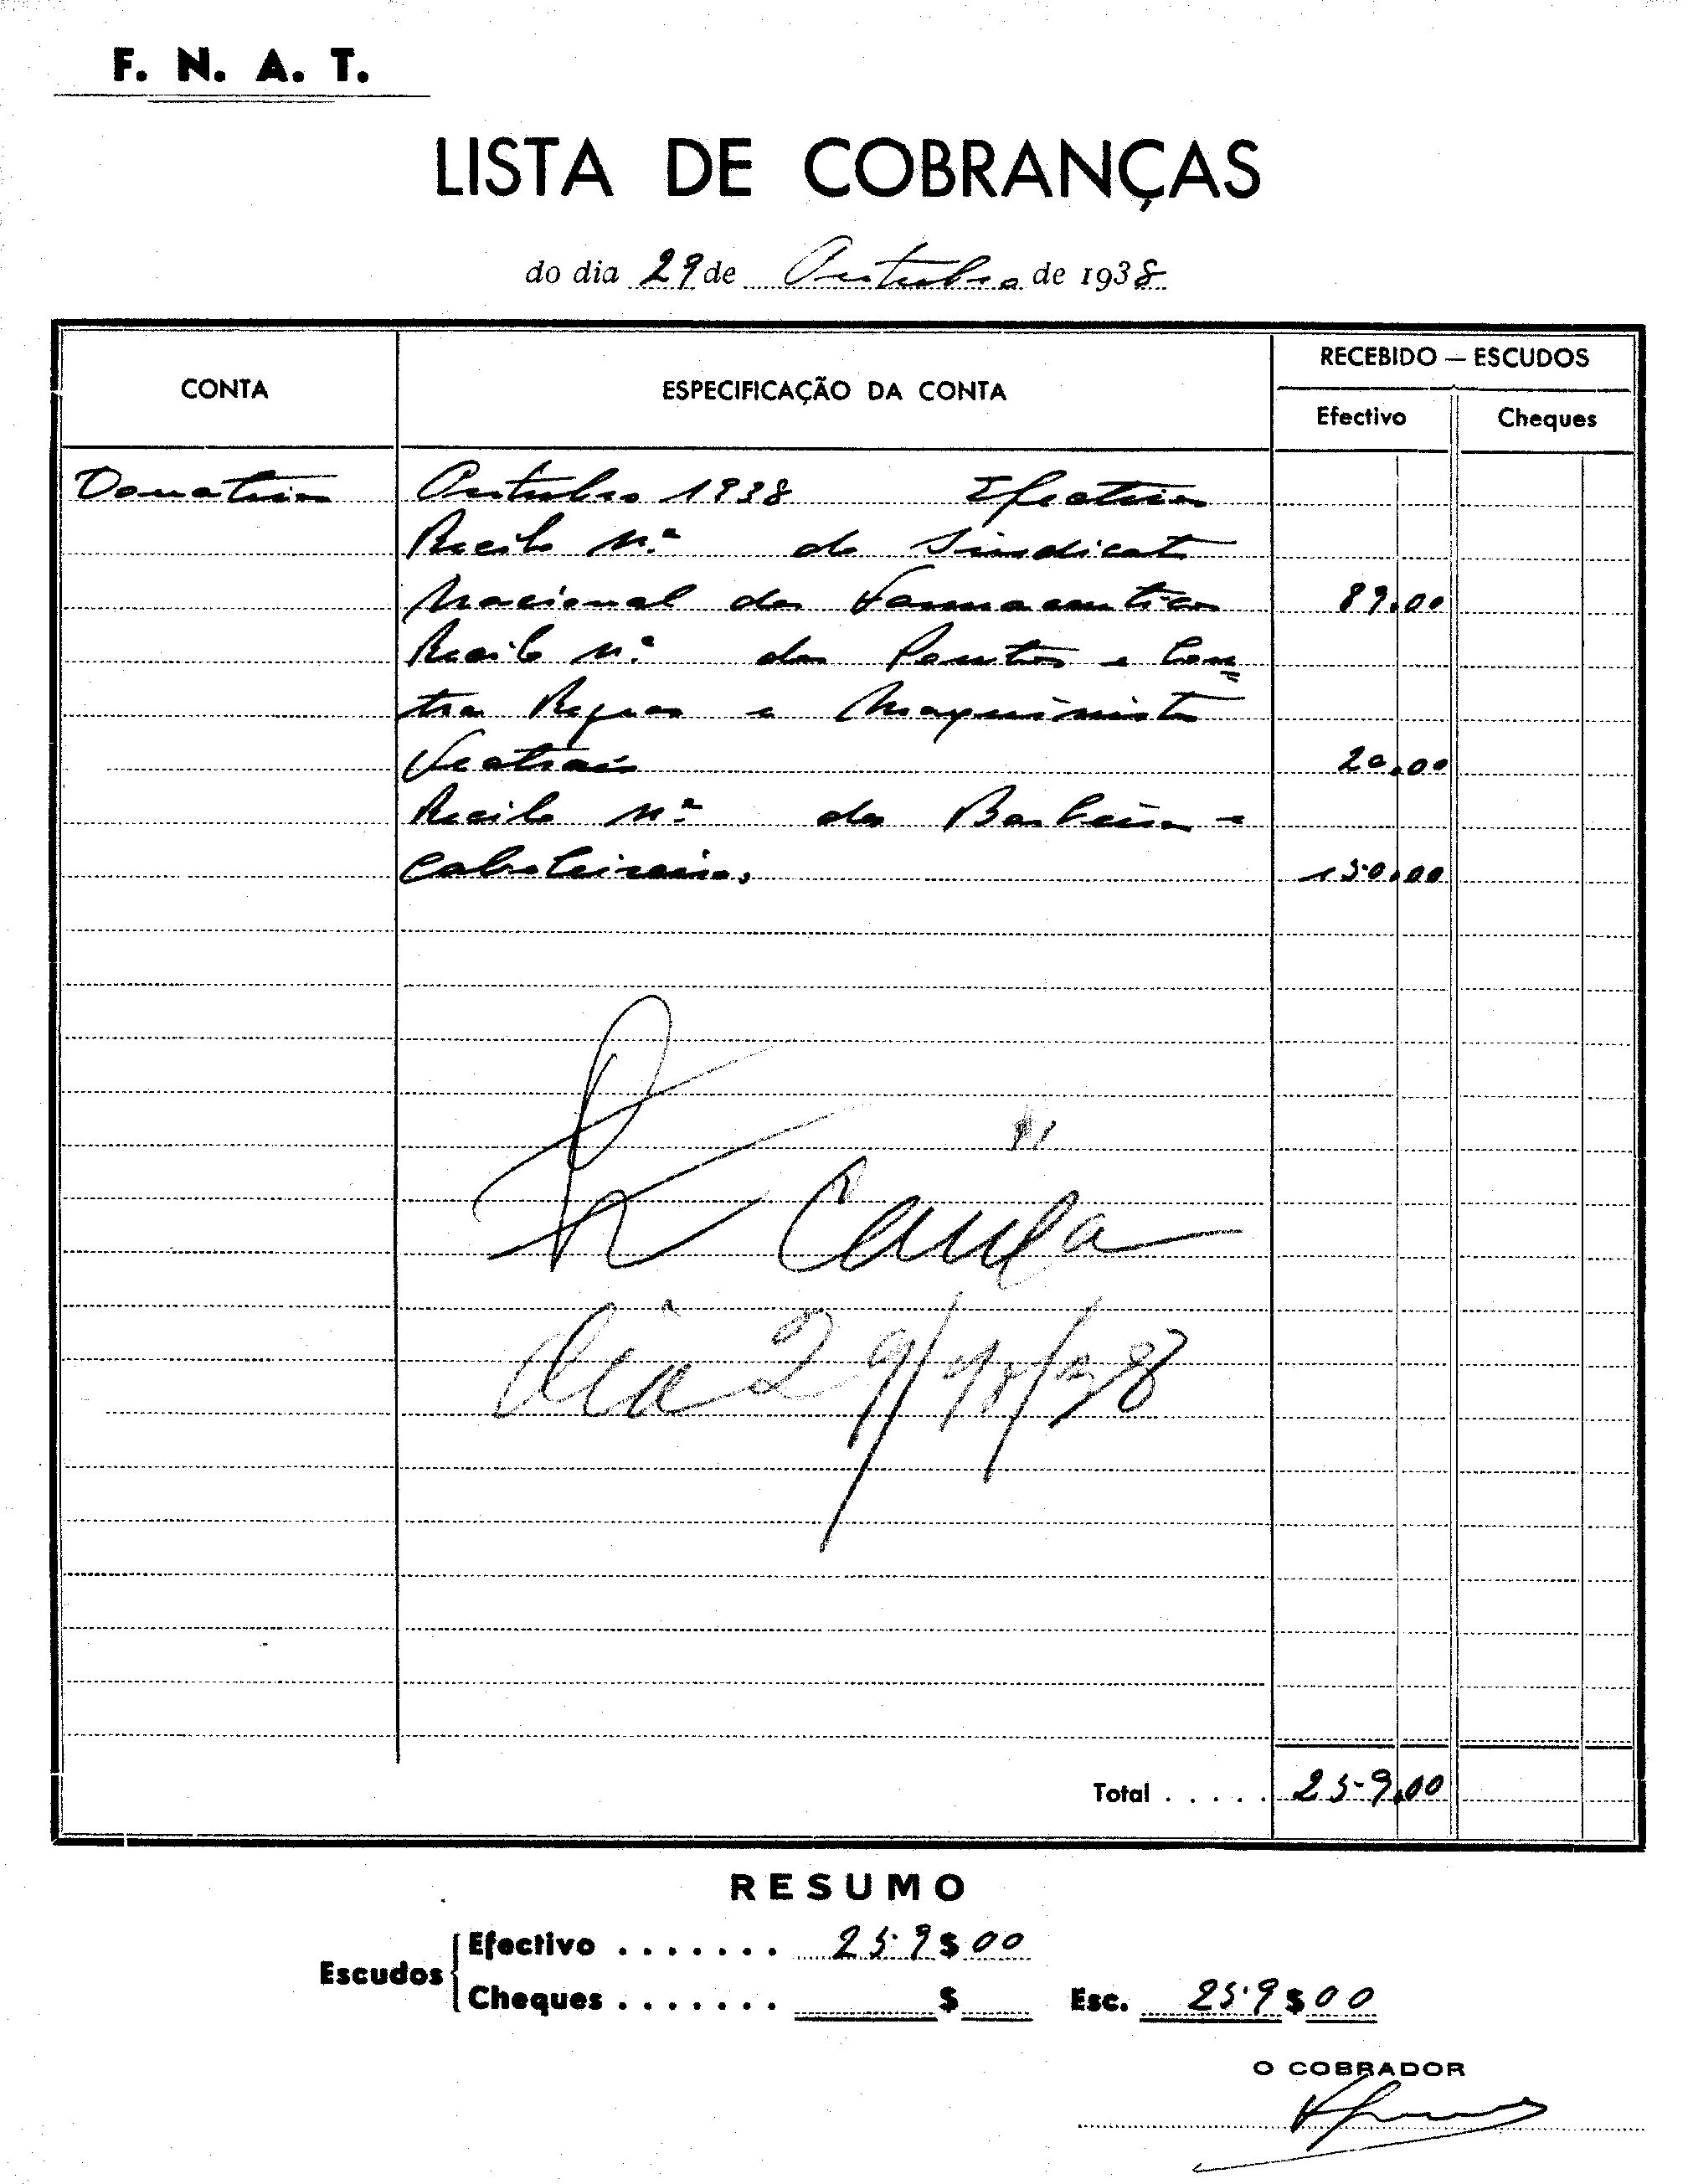 F. N. A. T.
LISTA DE COBRANÇAS
do dia 29 de Outubro de 1938
CONTA
ESPECIFICAÇÃO DA CONTA
RECEBIDO — ESCUDOS
Efectivo
Cheques
Donativos Outubro 1938 Efectivos
Recibo N.º do Sindicato
Nacional dos Farmaceuticos 89.00
Recibo N.º dos Pontos e Con=
tra Regras e Maquinistas
Teatrais 20.00
Recibo N.º dos Barbeiros e
Cabeleireiros, 150.00
Caixa
dia 29/10/38
Total . . . . . 259.00
RESUMO
Escudos
Efectivo . . . . . . . 259$00
Cheques . . . . . . . $
Esc. 259$00
O COBRADOR